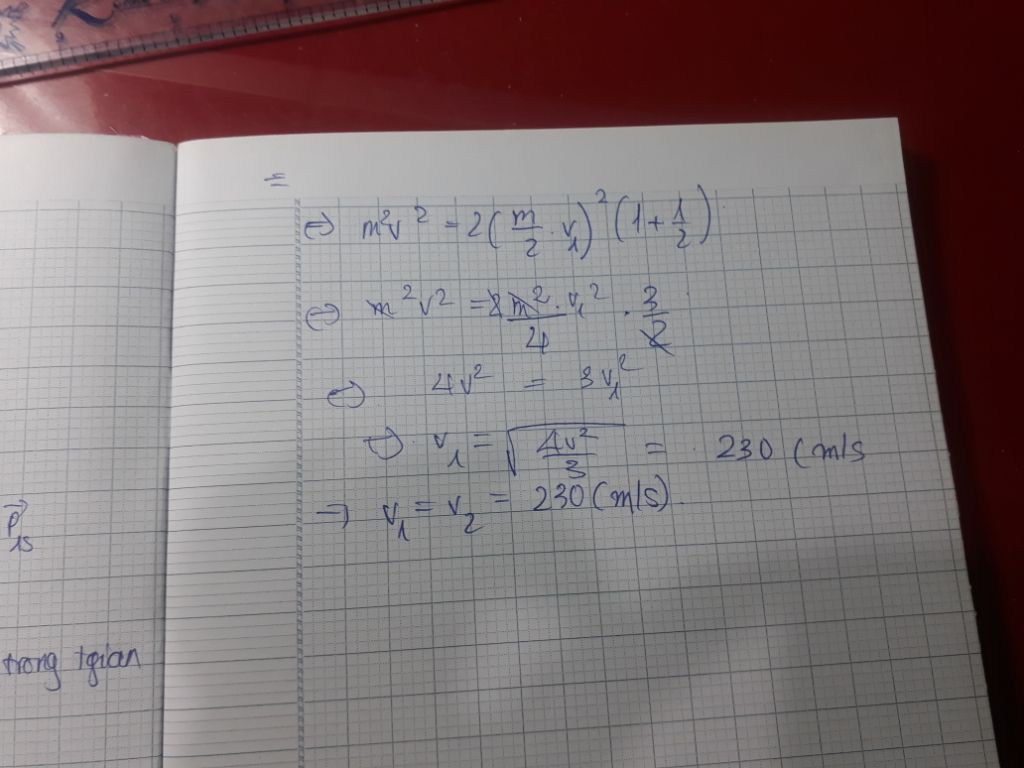 =
⇔ m²v² = 2(m/2 . v₁)² (1 + 1/2)
⇔ m²v² = 2 m²/4 . v₁² . 3/2
⇔ 4v² = 3v₁²
⇔ v₁ = √(4v²/3) = 230 (m/s
⇒ v₁ = v₂ = 230 (m/s).
p⃗₁s
trong tgian